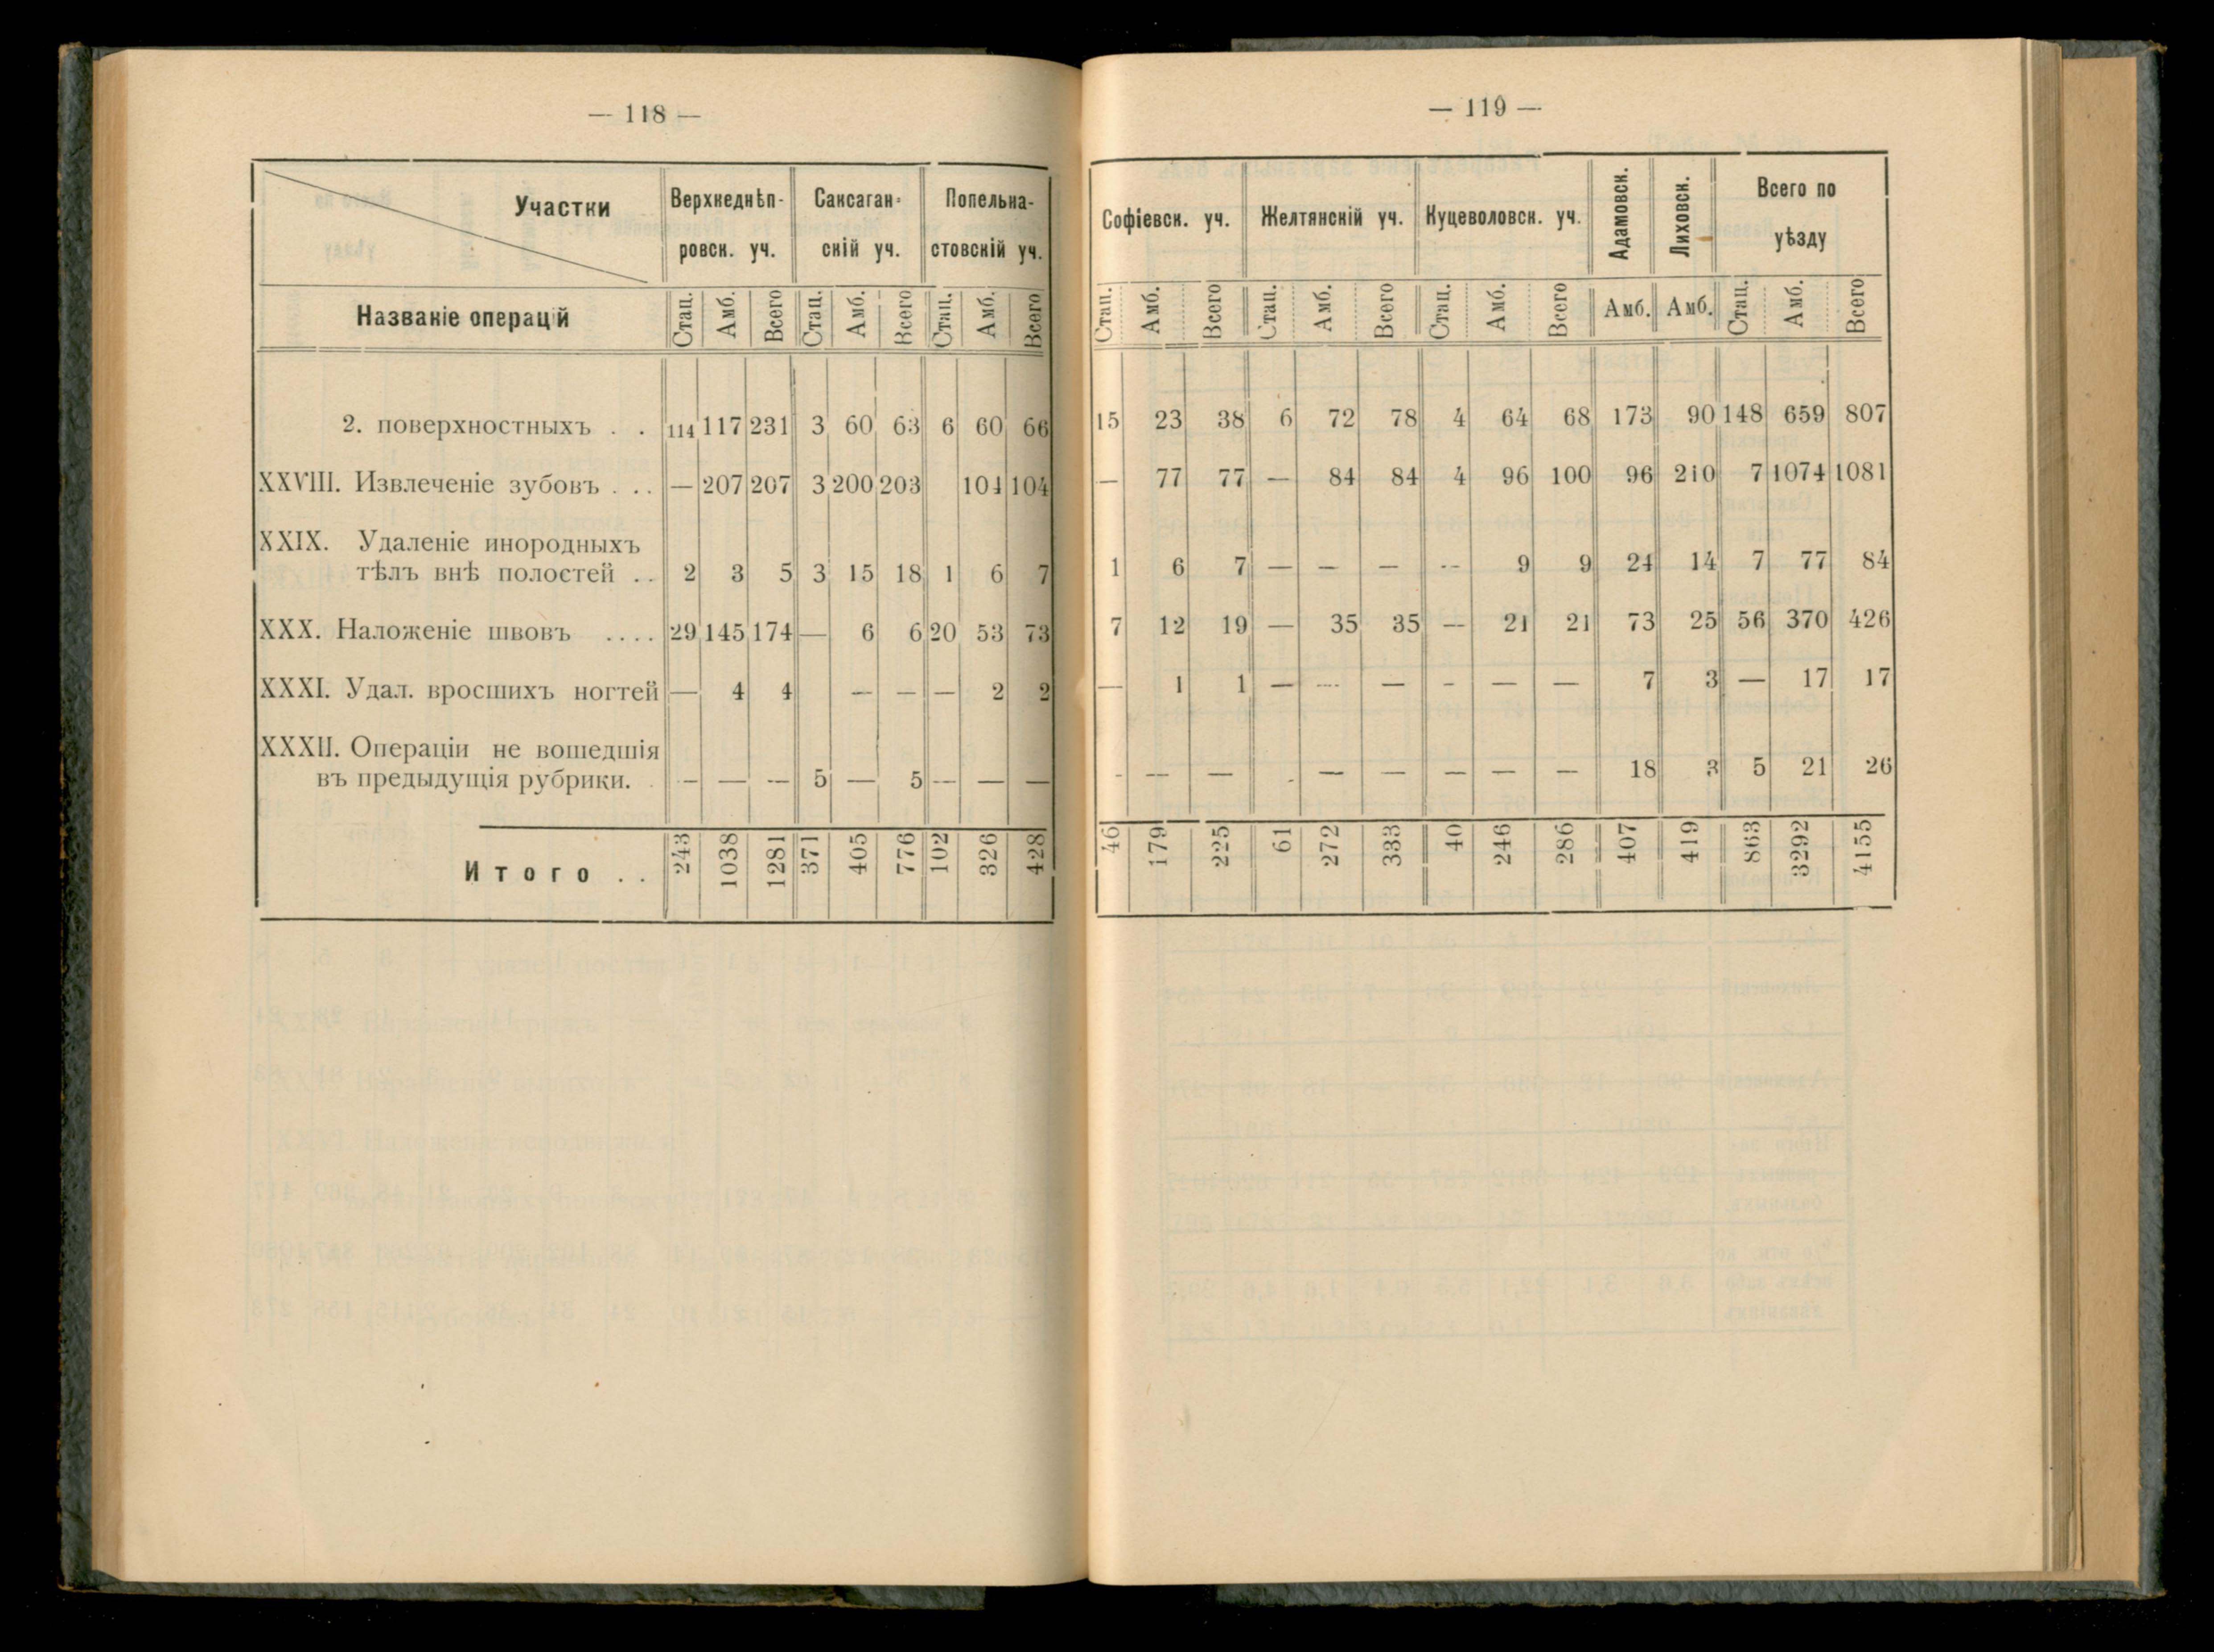 — 118 —
Участки
Верхнеднѣп-
ровск. уч.
Саксаган-
скій уч.
Попельна-
стовскій уч.
Названіе операцій
Стац. Амб. Всего Стац. Амб. Всего Стац. Амб. Всего
2. поверхностныхъ . . 114 117 231 3 60 63 6 60 66
XXVIII. Извлеченіе зубовъ . . . — 207 207 3 200 203 104 104
XXIX. Удаленіе инородныхъ
тѣлъ внѣ полостей . . 2 3 5 3 15 18 1 6 7
XXX. Наложеніе швовъ .... 29 145 174 — 6 6 20 53 73
XXXI. Удал. вросшихъ ногтей — 4 4 — — — 2 2
XXXII. Операціи не вошедшія
въ предыдущія рубрики. — — — 5 — 5 — — —
Итого . . 243 1038 1281 371 405 776 102 326 428
— 119 —
Софіевск. уч. Желтянскій уч. Куцеволовск. уч. Адамовск. Лиховск.
Всего по
уѣзду
Стац. Амб. Всего Стац. Амб. Всего Стац. Амб. Всего Амб. Амб. Стац. Амб. Всего
15 23 38 6 72 78 4 64 68 173 90 148 659 807
— 77 77 — 84 84 4 96 100 96 210 7 1074 1081
1 6 7 — — — -- 9 9 24 14 7 77 84
7 12 19 — 35 35 — 21 21 73 25 56 370 426
— 1 1 — — — - — — 7 3 — 17 17
- — — - — — — — — 18 3 5 21 26
46 179 225 61 272 333 40 246 286 407 419 863 3292 4155